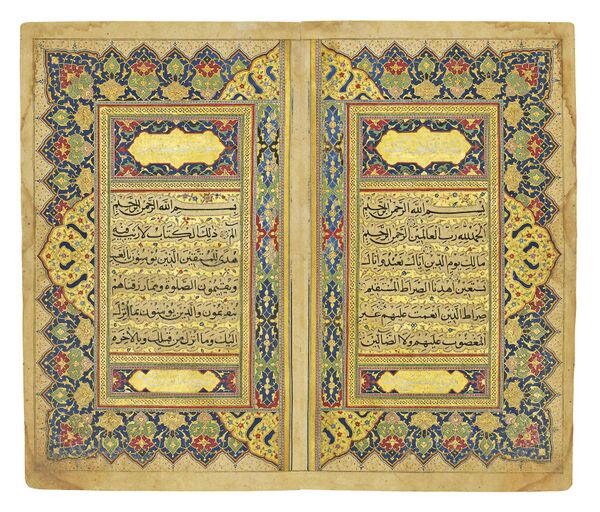 بسم الله الرحمن الرحيم
الحمد لله رب العالمين الرحمن الرحيم
مالك يوم الدين اياك نعبد واياك
نستعين اهدنا الصراط المستقيم
صراط الذين انعمت عليهم غير
المغضوب عليهم ولا الضالين
بسم الله الرحمن الرحيم
الم ذلك الكتاب لا ريب فيه
هدى للمتقين الذين يؤمنون بالغيب
ويقيمون الصلوة ومما رزقناهم
ينفقون والذين يؤمنون بما انزل
اليك وما انزل من قبلك وبالاخرة